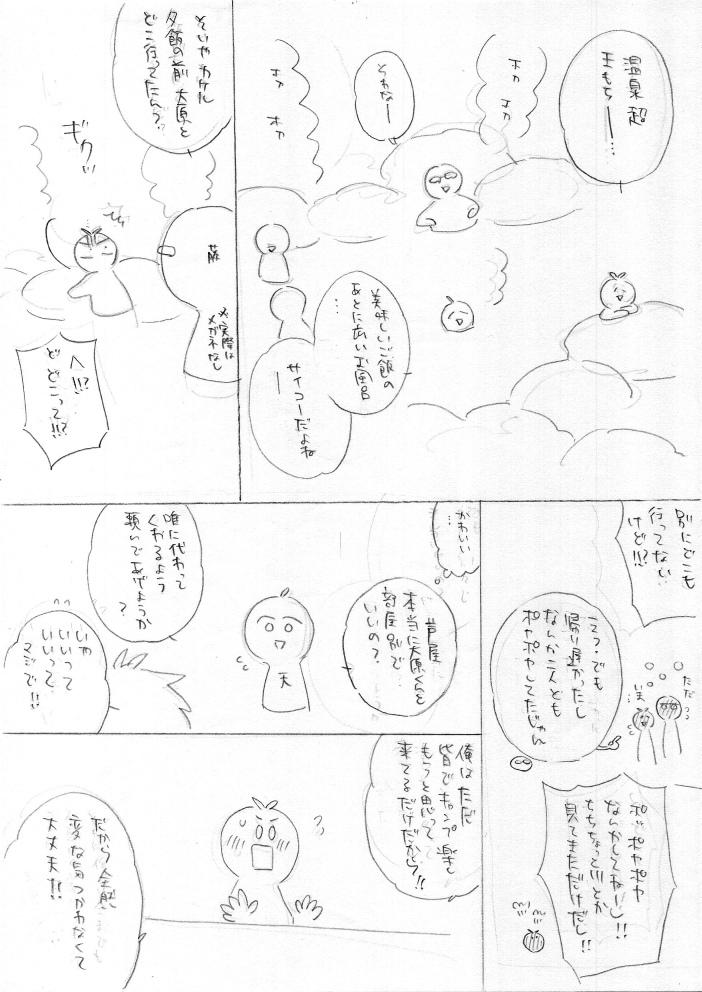 温泉 超
王もち——…
ホカ
ホカ
それなー
ホカ
ホカ
美味しいご飯の
あとに広いお風呂
…
サイコーだよね
——
そいや
夕飯の前 大原と
どこ行ってたん?
ギクッ
藤
※実際は
メガネなし
へ!!?
ど どこって!!?
別にどこも
行ってない
けど!!?
えっ・でも
帰り遅かったし
なんか二人とも
ポヤポヤしてたじゃん
ただ
いま
ポッ ポヤポヤ
なんかしてねーし!!
かわいい
…
芦屋
本当に大原くんと
部屋別で
いいの?
天
唯に代わって
くれるよう
頼んであげようか
?
いや
いいって
いいって
マジで!!
俺はただ
皆でキャンプ楽し
もうと思って
来てるだけだから!!
だから全然
変な気つかわなくて
大丈夫!!